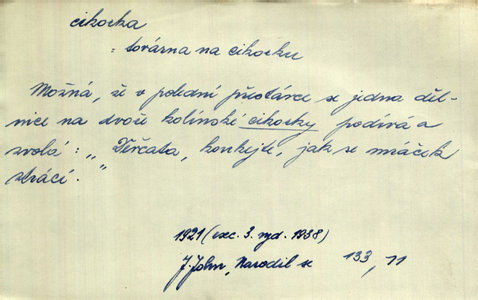 cikorka
: továrna na cikorku
Možná, že v polední přestávce se jedna děl-
nice na dvoře kolínské cikorky podívá a
zvolá: „Děvčata, koukejte, jak se mráček
ztrácí."
1921 (exc. 3. vyd. 1938)
J. John, Narodil se 133, 11